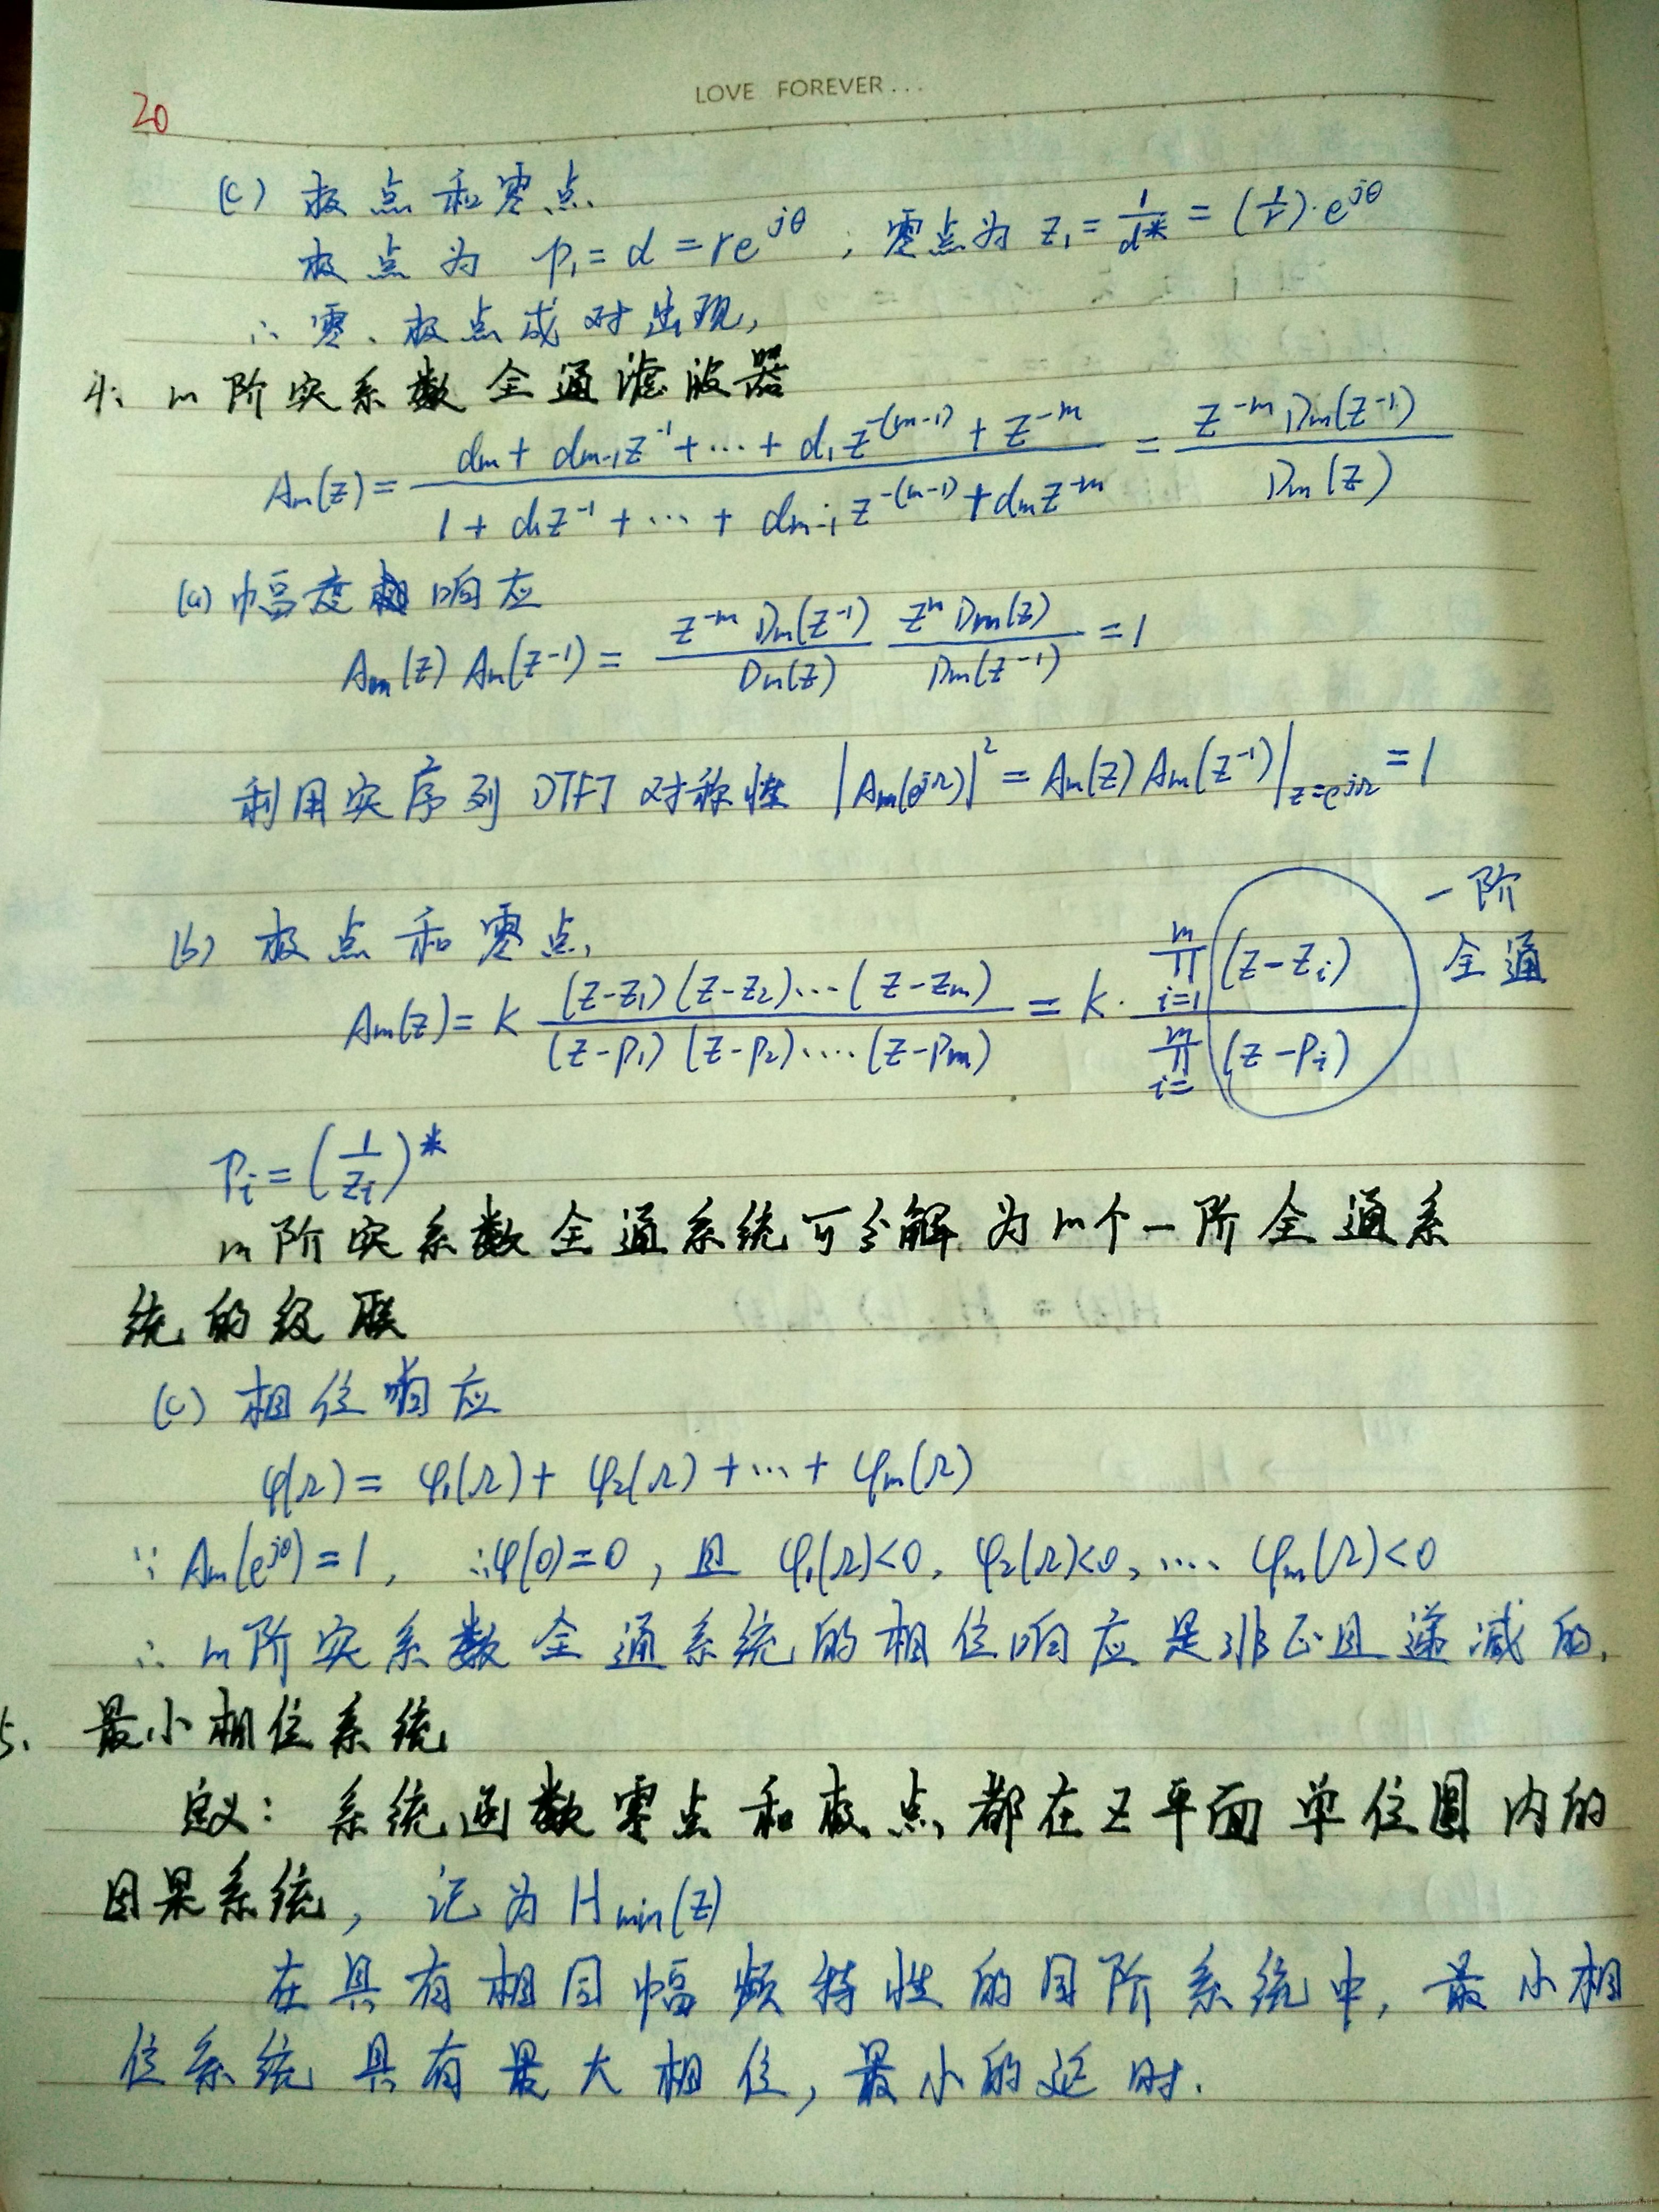 LOVE FOREVER...
20
(c) 极点和零点
极点为 p₁ = d = re^{jθ} , 零点为 z₁ = 1/d* = (1/r)·e^{jθ}
∴ 零、极点成对出现,
4、m阶实系数全通滤波器
Am(z) = (dm + dm-1z⁻¹ + ··· + d₁z^{-(m-1)} + z^{-m}) / (1 + d₁z⁻¹ + ··· + dm-1z^{-(m-1)} + dmz^{-m}) = z^{-m}Dm(z⁻¹) / Dm(z)
(a) 幅度响应
Am(z) Am(z⁻¹) = z^{-m}Dm(z⁻¹)/Dm(z) z^{m}Dm(z)/Dm(z⁻¹) = 1
利用实序列DTFT对称性 |Am(e^{jΩ})|² = Am(z)Am(z⁻¹)|_{z=e^{jΩ}} = 1
(b) 极点和零点
一阶
全通
Am(z) = K (z-z₁)(z-z₂)···(z-zm) / (z-p₁)(z-p₂)····(z-pm) = K· ∏_{i=1}^{m}(z-zi) / ∏_{i=}^{m}(z-pi)
Pi = (1/zi)*
m阶实系数全通系统可分解为m个一阶全通系
统的级联
(c) 相位响应
φ(Ω) = φ₁(Ω) + φ₂(Ω) + ··· + φm(Ω)
∵ Am(e^{j0}) = 1, ∴φ(0)=0, 且 φ₁(Ω)<0, φ₂(Ω)<0, ···· φm(Ω)<0
∴ m阶实系数全通系统的相位响应是非正且递减的.
5、最小相位系统
定义: 系统函数零点和极点都在Z平面单位圆内的
因果系统, 记为 Hmin(z)
在具有相同幅频特性的同阶系统中, 最小相
位系统具有最大相位, 最小的延时.